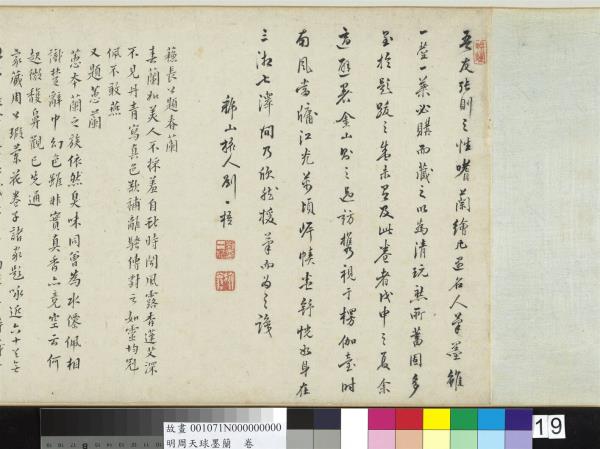 吾友張則之性嗜蘭繪凡遇名人筆墨雖
一莖一葉必購而藏之以為清玩無所舊固多
至於題跋之朱未有及此卷者戊申之夏余
適避暑金山則之過訪攜視于楞伽臺時
南風當牖江光萬頃幈幨盡舒恍如身在
三湘七澤間乃欣然援筆而為之識
郁山旅人別一槎
蘇長公題春蘭
春蘭如美人不採羞自獻時聞風露香蓬艾深
不見丹青寫真色欲補離騷傳對之如靈均冠
佩不敢燕
又題蕙蘭
蕙本蘭之族依然臭味同曾為水僊佩相
識楚辭中幻色雖非實真香亦竟空云何
起微馥鼻觀已先通
家藏周公瑕葉花卷子諸家題詠近六十
故畫 001071N000000000
明周天球墨蘭 卷
19